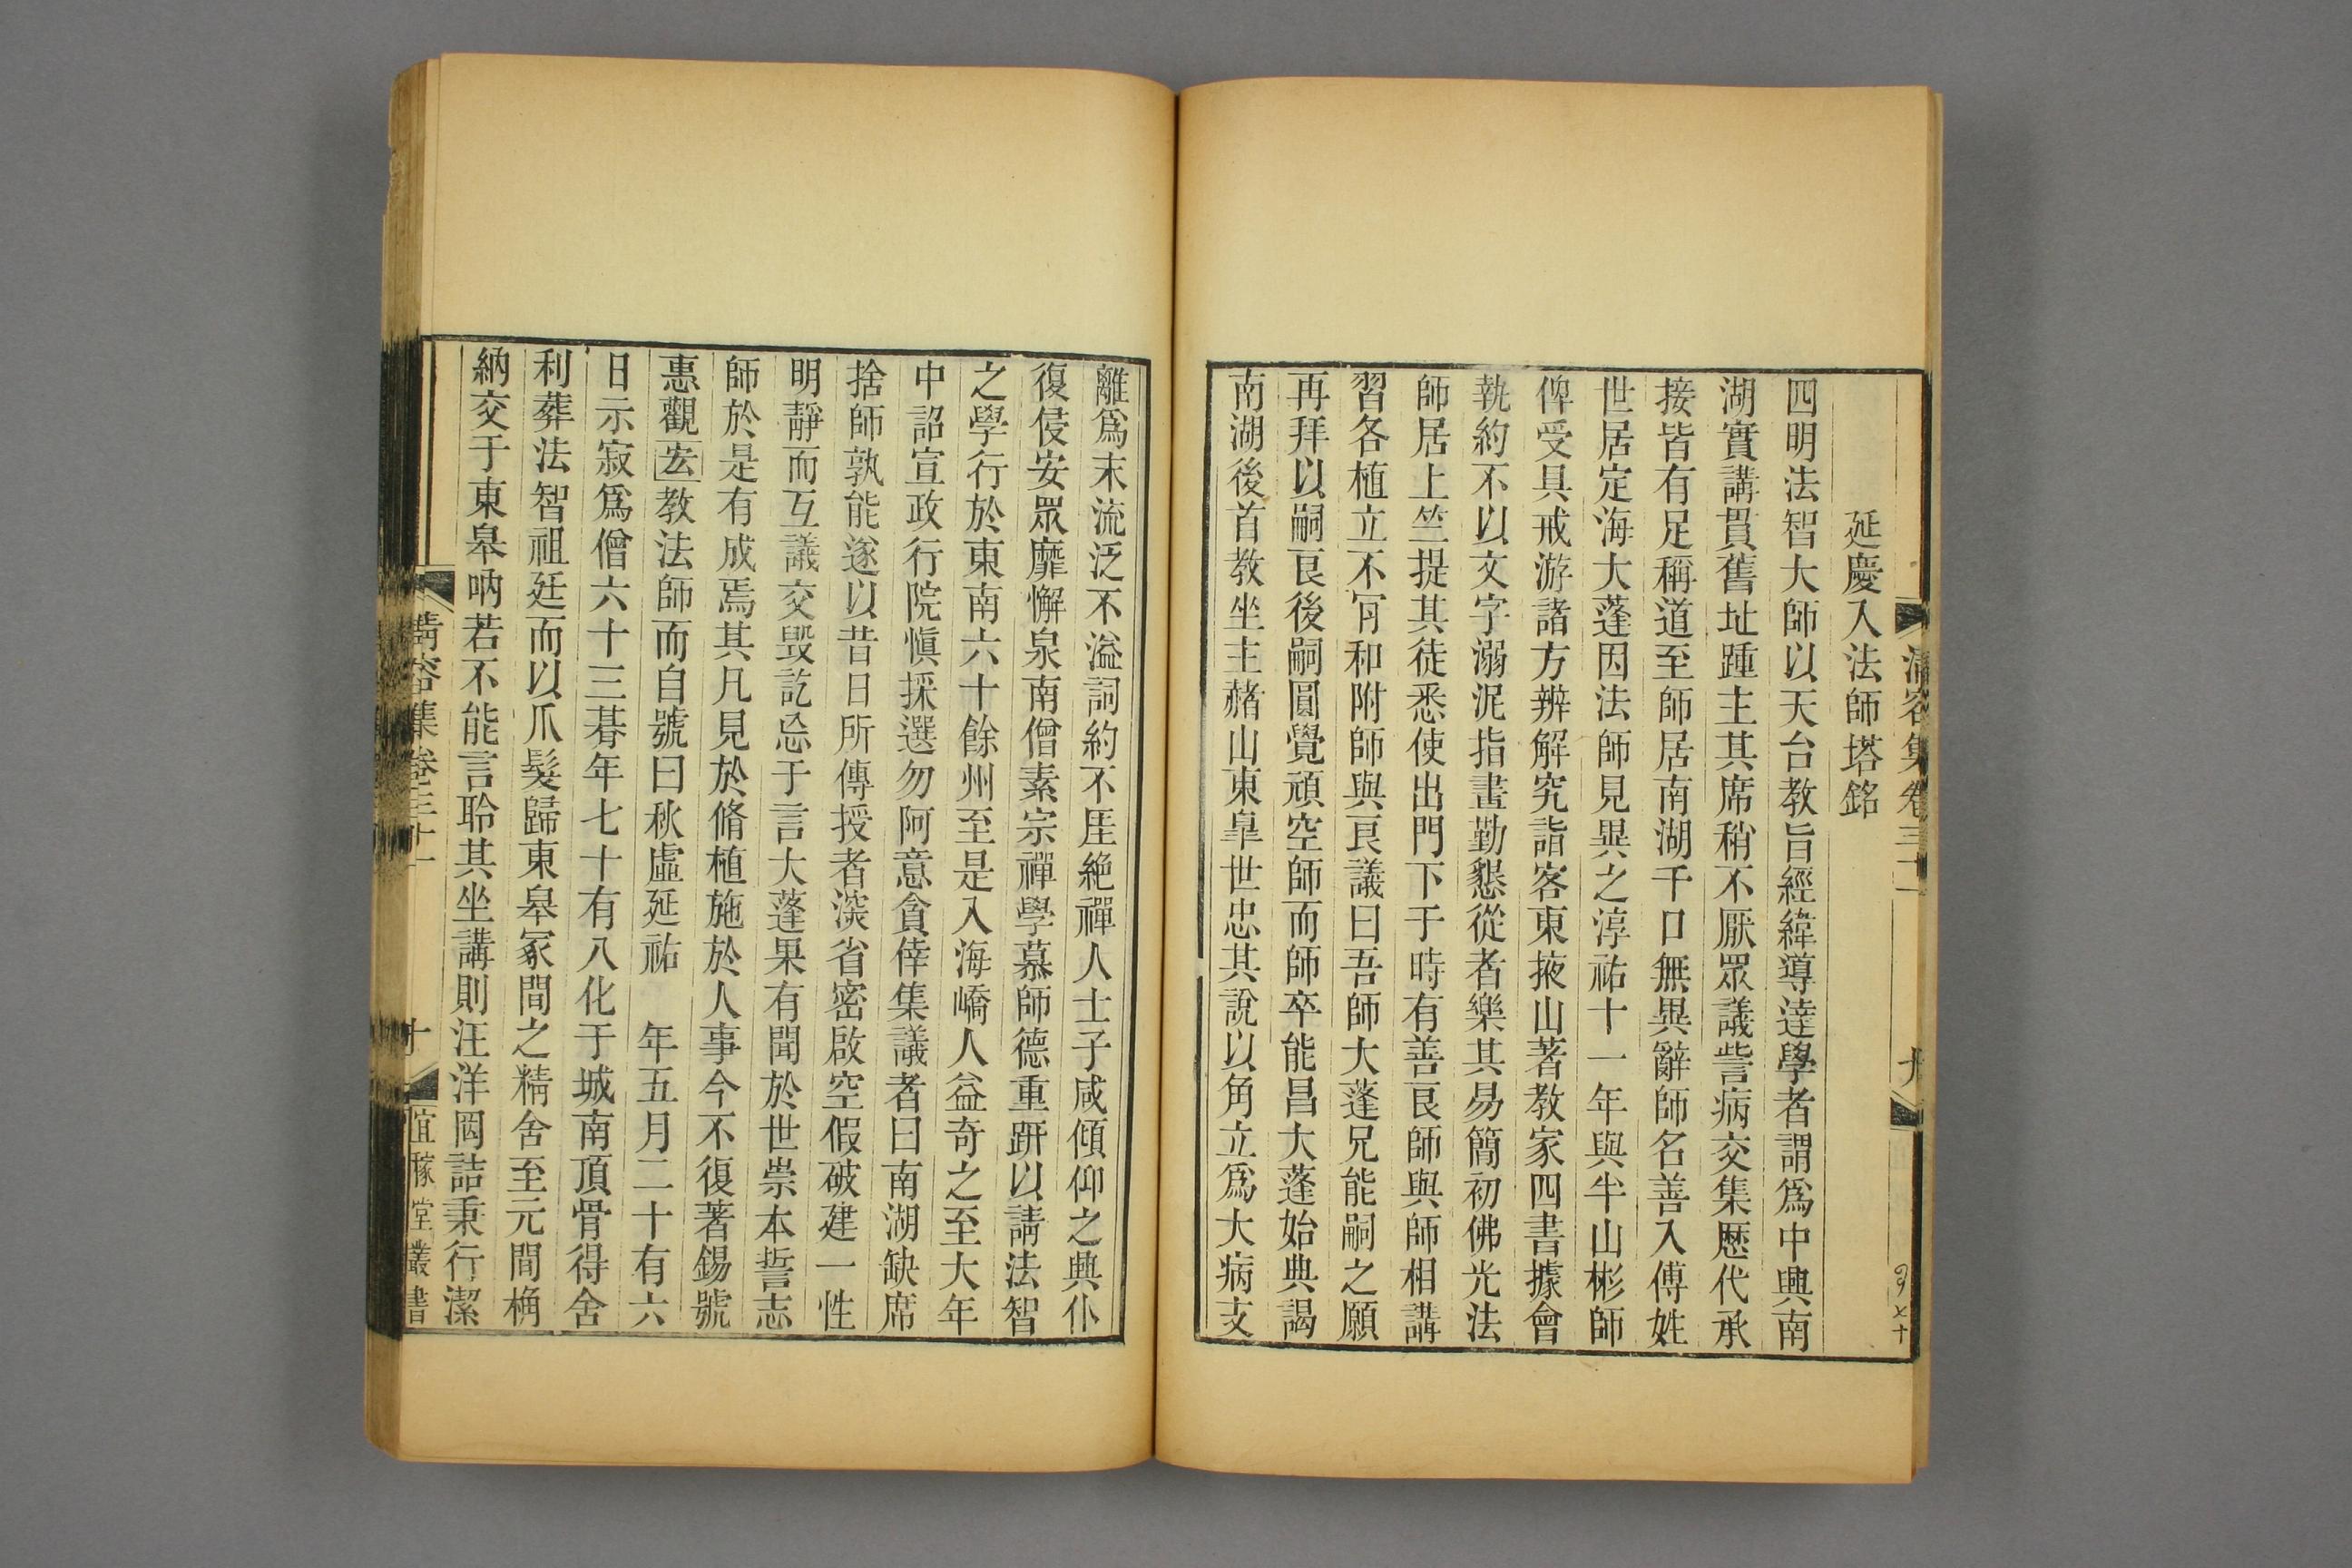 清容集卷三十一
九
延慶入法師塔銘
四明法智大師以天台教旨經緯導達學者謂爲中興南
湖實講貫舊址踵主其席稍不厭眾議訾病交集歷代承
接皆有足稱道至師居南湖千口無異辭師名善入傅姓
世居定海大蓬因法師見異之淳祐十一年與半山彬師
俾受具戒游諸方辨解究詣客東掖山著教家四書據會
執約不以文字溺泥指畫勤懇從者樂其易簡初佛光法
師居上竺提其徒悉使出門下于時有善良師與師相講
習各植立不肎和附師與良議曰吾師大蓬兄能嗣之願
再拜以嗣良後嗣圓覺頑空師而師卒能昌大蓬始典謁
南湖後首教坐主赭山東皐世忠其說以角立爲大病支
離爲末流泛不溢詞約不厓絶禪人士子咸傾仰之興仆
復侵安眾靡懈泉南僧素宗禪學慕師德重趼以請法智
之學行於東南六十餘州至是入海嶠人益奇之至大年
中詔宣政行院慎採選勿阿意貪倖集議者曰南湖缺席
捨師孰能遂以昔日所傳授者深省密啟空假破建一性
明靜而互議交毀訖忌于言大蓬果有聞於世祟本誓志
師於是有成焉其凡見於脩植施於人事今不復著錫號
惠觀宏教法師而自號曰秋虛延祐　年五月二十有六
日示寂爲僧六十三朞年七十有八化于城南頂骨得舍
利葬法智祖廷而以爪髮歸東皋冢間之精舍至元間桷
納交于東皋吶若不能言聆其坐講則汪洋罔詰秉行潔
清容集卷三十一
十
宜稼堂叢書